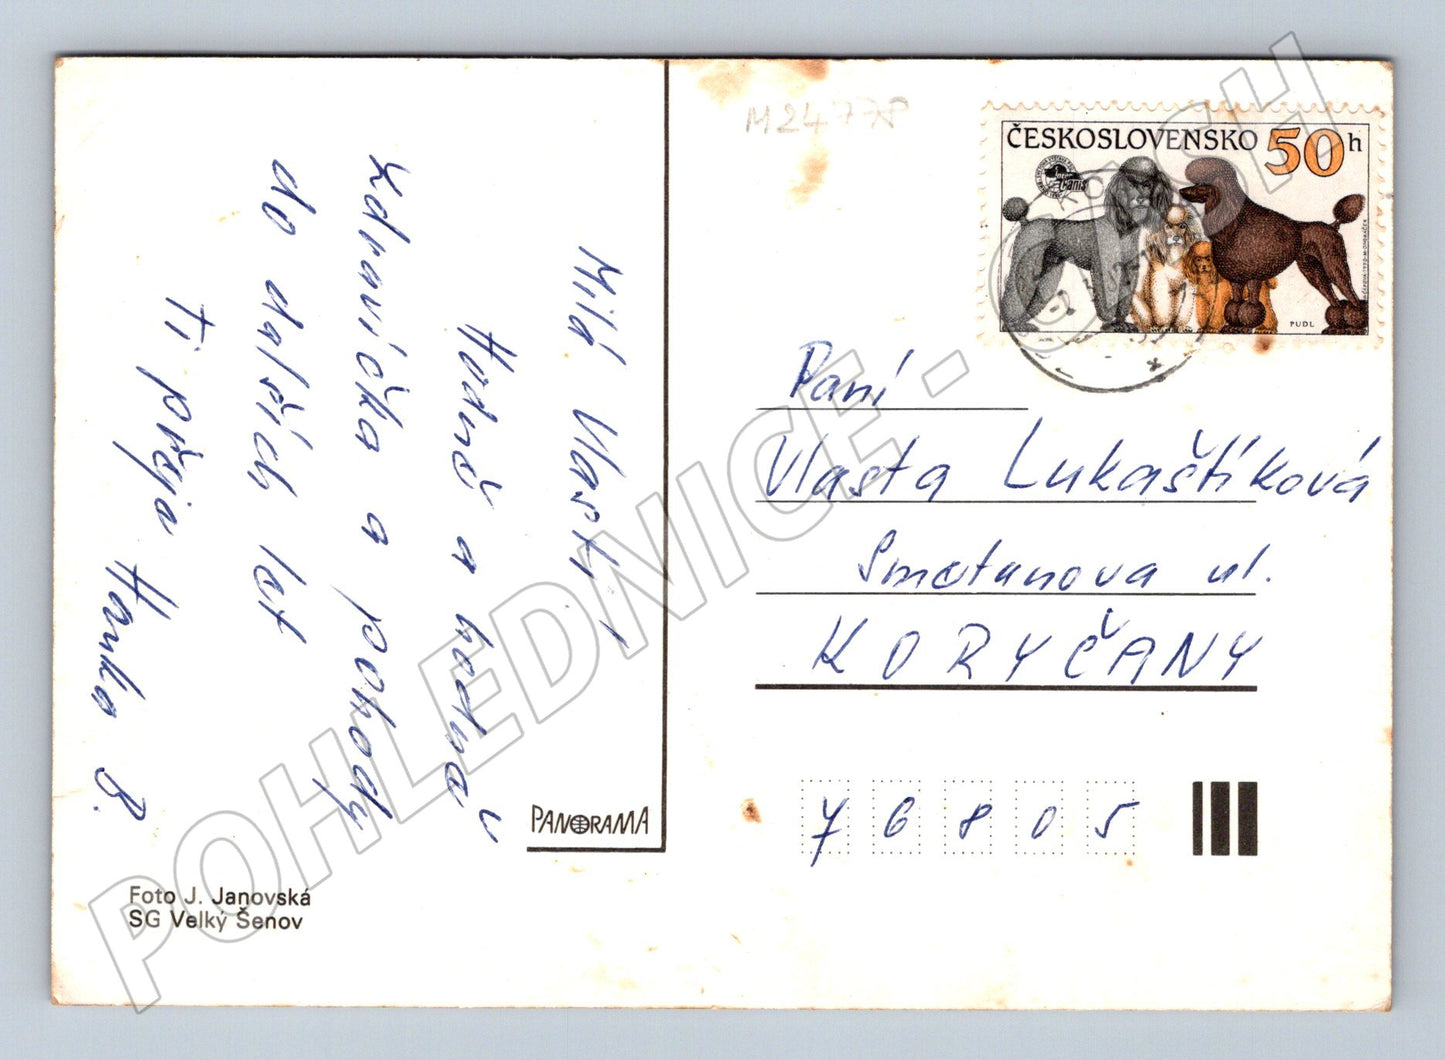 Milá Vlasti,
Hodně a hodně
zdravíčka a pohody
do dalších let
Ti přeje Hanka B.
PANORAMA
Foto J. Janovská
SG Velký Šenov
M24778
ČESKOSLOVENSKO 50 h
PUDL
Paní
Vlasta Lukaštíková
Smetanova ul.
KORYČANY
76805
POHLEDNICE - CASH